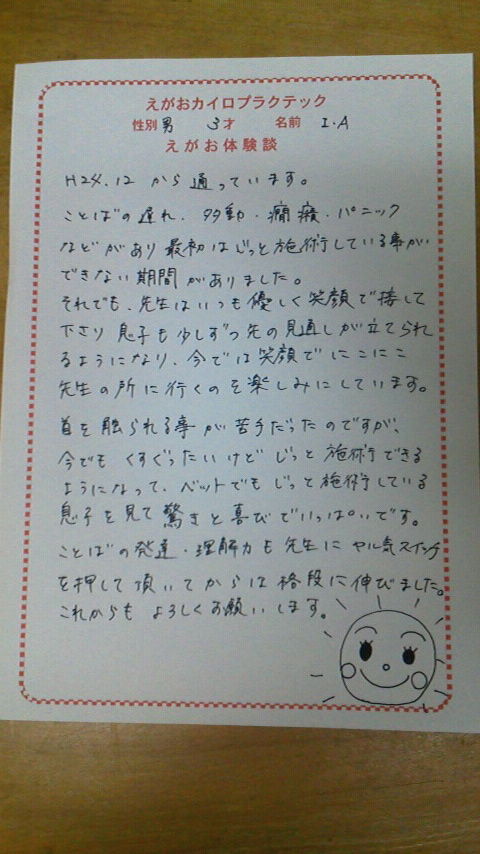 えがおカイロプラクテック
性別 男 3才 名前 I・A
えがお体験談
H24.12 から 通っています。
ことばの遅れ、多動・癇癪・パニック
などがあり 最初はじっと施術している事が
できない期間がありました。
それでも、先生はいつも優しく笑顔で接して
下さり 息子も少しずつ先の見通しが立てられ
るようになり、今では笑顔でにこにこ
先生の所に行くのを楽しみにしています。
首を触られる事が苦手だったのですが、
今でもくすぐったいけど じっと施術できる
ようになって、ベットでもじっと施術している
息子を見て驚きと喜びでいっぱいです。
ことばの発達・理解力も先生にヤル気スイッチ
を押して頂いてからは格段に伸びました。
これからも よろしくお願いします。